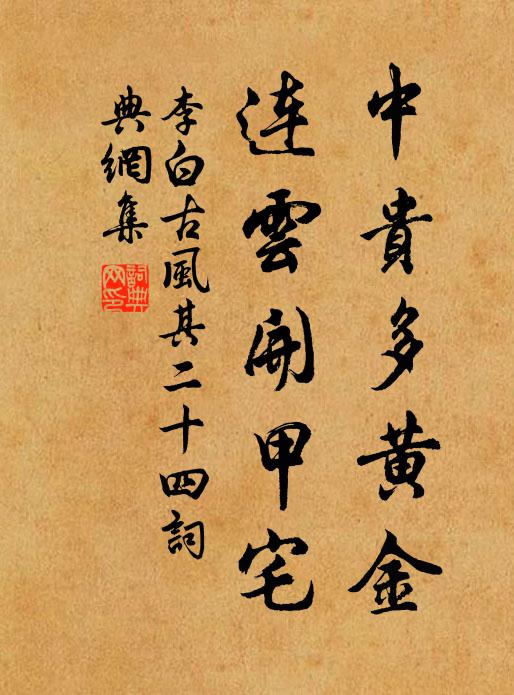 中貴多黄金
連雲開甲宅
李白古風其二十四詞
典網集
詞典網印